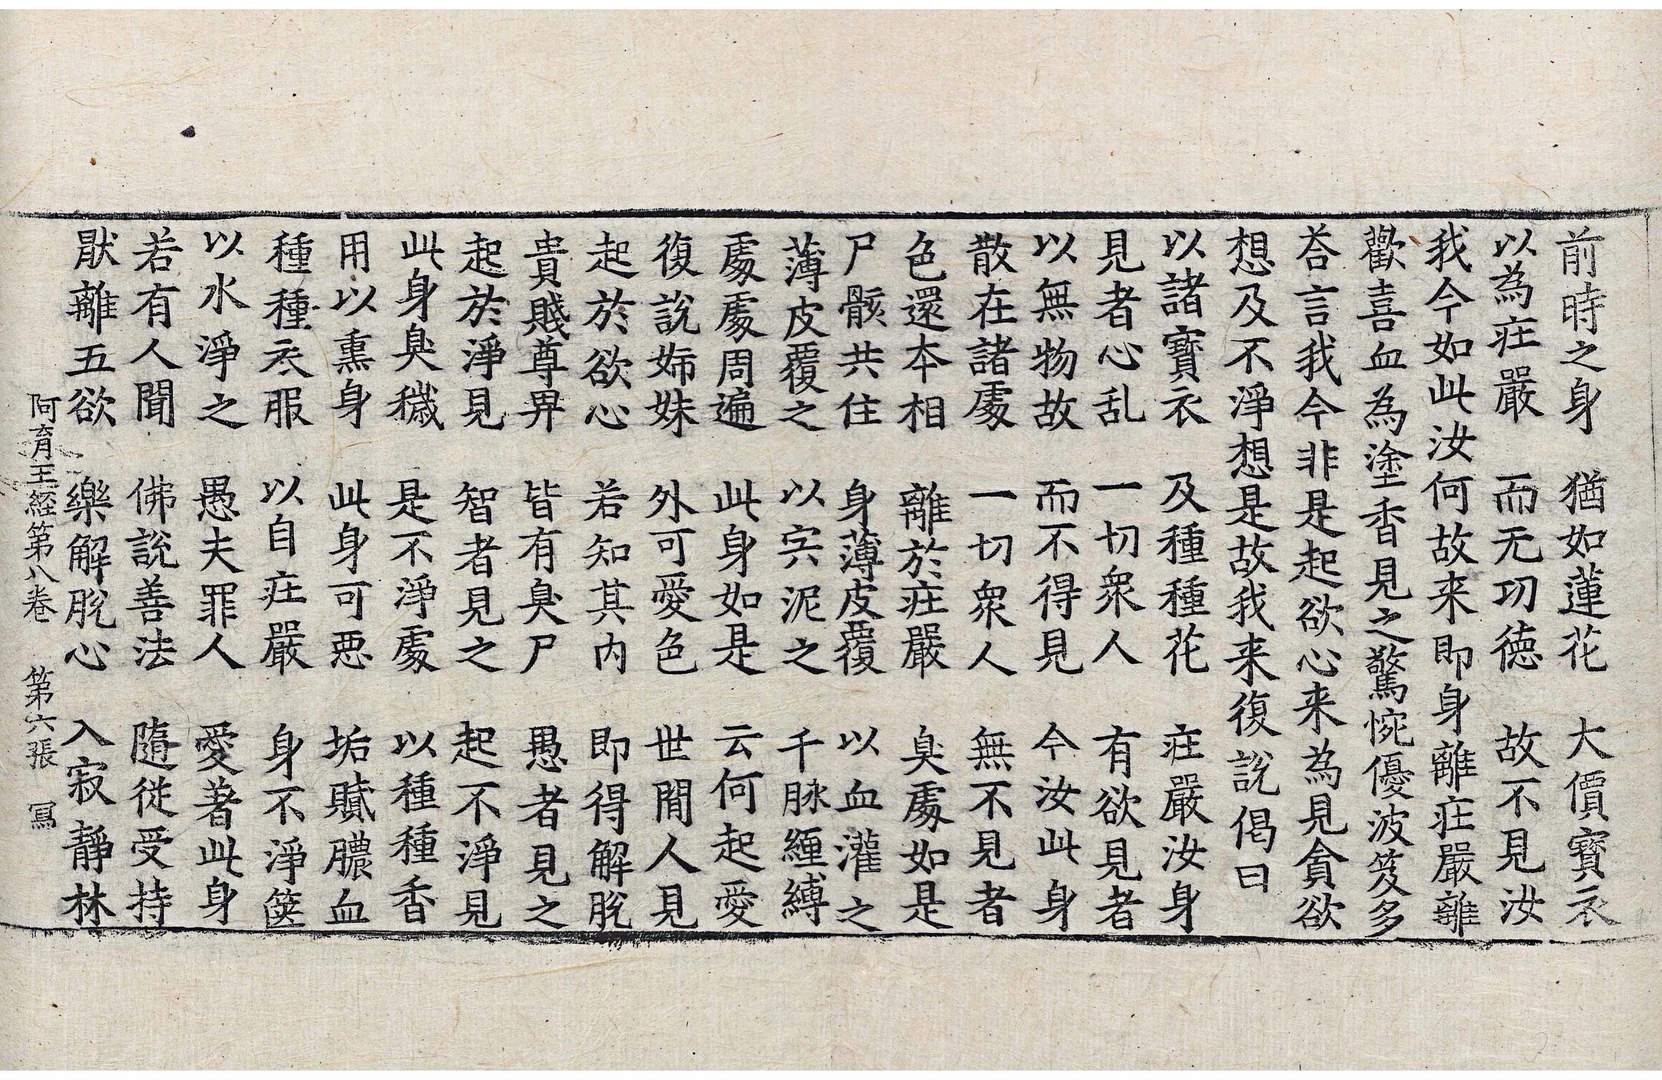 前時之身 猶如蓮花 大價寶衣
以為㽵嚴 而无功徳 故不見汝
我今如此汝何故来即身離㽵嚴離
歡喜血為塗香見之驚惋優波笈多
荅言我今非是起欲心来為見貪欲
想及不淨想是故我来復說偈曰
以諸寶衣 及種種花 㽵嚴汝身
見者心乱 一切衆人 有欲見者
以無物故 而不得見 今汝此身
散在諸處 一切衆人 無不見者
色還本相 離於㽵嚴 臭處如是
尸骸共住 身薄皮覆 以血灌之
薄皮覆之 以宍泥之 千脉纒縛
處處周遍 此身如是 云何起愛
復說姉妹 外可愛色 世間人見
起於欲心 若知其内 即得解脫
貴賤尊畀 皆有臭尸 愚者見之
起於淨見 智者見之 起不淨見
此身臭穢 是不淨處 以種種香
用以熏身 此身可惡 垢膩膿血
種種衣服 以自㽵嚴 身不淨篋
以水淨之 愚夫罪人 愛著此身
若有人聞 佛說善法 隨從受持
猒離五欲 樂解脫心 入寂靜林
阿育王經第八卷 第六張 寫